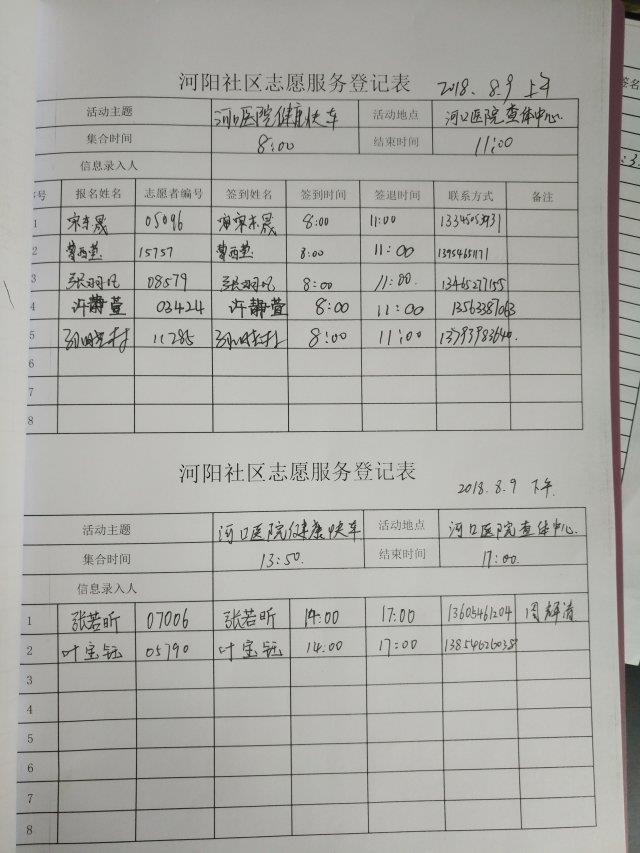 河阳社区志愿服务登记表 2018.8.9 上午
活动主题 河口医院健康快车 活动地点 河口医院查体中心
集合时间 8:00 结束时间 11:00
信息录入人
序号 报名姓名 志愿者编号 签到姓名 签到时间 签退时间 联系方式 备注
1 宋东晟 05096 宋东晟 8:00 11:00
2 15757 8:00 11:00
3 张羽凡 08579 张羽凡 8:00 11:00. 13465277155
4 许静萱 03424 许静萱 8:00 11:00 13563387063
5 11285 8:00 11:00
6
7
8
河阳社区志愿服务登记表 2018.8.9 下午.
活动主题 河口医院健康快车 活动地点 河口医院查体中心.
集合时间 13:50. 结束时间 17:00.
信息录入人
1 张若昕 07006 张若昕 14:00 17:00 13605461204
2 叶宝钰 05790 叶宝钰 14:00 17:00
3
4
5
6
7
8
签名